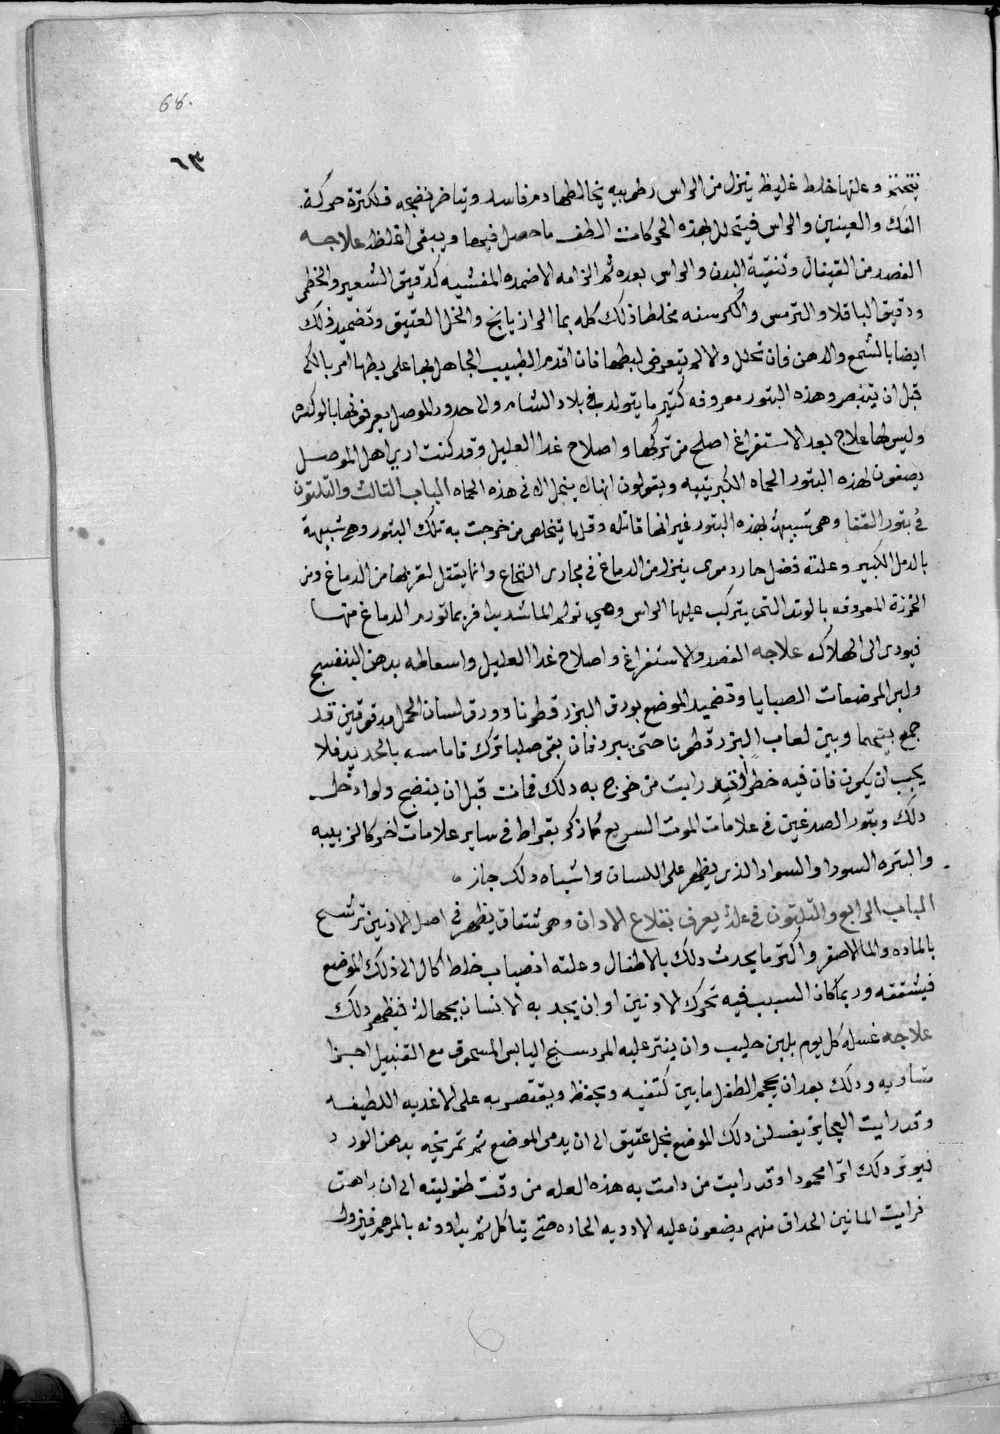 68.
٦٣
وعلتها خلط غليظ ينزل من الراس رطوبيه يخالطها دم فاسد ويتاخر نضجه فلكثرة حركة
الفك والعينين والراس فيتحلل بهذه الحركات الطف ما حصل فيها ويبقى اغلظه علاجه
الفصد من القيفال وتنقية البدن والراس بعده ثم الزامه الاضمده المفشيه كدقيق الشعير والخطمي
ودقيق الباقلا والترمس والكرسنه مخلطا ذلك كله بما الرازيانج والخل العتيق وتضميد ذلك
ايضا بالشمع والدهن فان تحلل والا لم يتعرض لبطها فان اقدم الطبيب الجاهل بها على بطها امر بالكى
قبل ان وهذه البثور معروفه كثير ما يتولد في بلاد الشام والى حدود الموصل يعرفونها بالوكده
وليس لها علاج بعد الاستفراغ اصلح من تركها واصلاح غدا العليل وقد كنت ارى اهل الموصل
يصفون لهذه البثور الحماه الكبريتيه ويقولون انها في هذه الحماه الباب الثالث والثلثون
في بثور القفا وهى شبيهة بهذه البثور غير انها قاتله وقلما يتخلص من خرجت به تلك البثور وهى شبيهة
بالدمل الكبير وعلته فضل حار دموى ينزل من الدماغ في مجارى النخاع وانما يقتل لقربها من الدماغ ومن
الخرزة المعروفه بالوتد التى يتركب عليها الراس وهي تولد الما شديدا فربما تورم الدماغ منها
فيودى الى الهلاك علاجه الفصد والاستفراغ واصلاح غدا العليل واسعاطه بدهن البنفسج
ولبن المرضعات الصبايا وتضميد الموضع بورق البزرقطونا وورق لسان الحمل مدقوقين قد
جمع بينهما وبين لعاب البزرقطونا حتى يبرد فان بقى صلبا ترك فاما مسه بالحديد فلا
يجب ان يكون فان فيه خطر وقد رايت من خرج به دلك فمات قبل ان ينضج ولو ادخل
دلك وبثور الصدغين في علامات الموت السريع كما ذكر بقراط في ساير علامات اخر كالزبيبه
والبثره السودا والسواد الذى يظهر على اللسان واشباه دلك جاز
الباب الرابع والثلثون في علة يعرف بقلاع الادان وهى شقاق يظهر في اصل الاذنين ترشح
بالماده والما الاصفر واكثر ما يحدث دلك بالاطفال وعلته انصباب خلط اكال الى ذلك الموضع
فيشققه وربما كان السبب فيه تحرك الادنين او ان يجد به الانسان بجهالة فيظهر دلك
علاجه غسله كل يوم بلبن حليب وان ينثر عليه المردسنج اليابس المسحوق مع القنبيل اجزا
متساويه ودلك بعد ان يحجم الطفل ما بين كتفيه ويحفظ ويقتصر به على الاغديه اللطيفه
وقد رايت العجايز يغسلن دلك الموضع بخل عتيق الى ان يدمى الموضع ثم تمرخه بدهن الورد
فيوثر دلك اثرا محمودا وقد رايت من دامت به هذه العله من وقت طفوليته الى ان راهق
فرايت الحداق منهم يضعون عليه الادويه الحاده حتى يتاكل ثم يداوونه بالمرهم فيزول